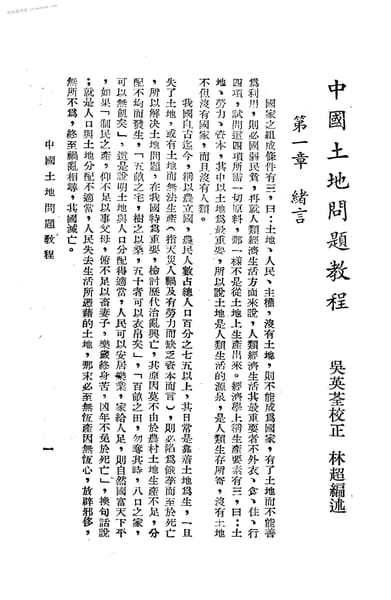 中國土地問題教程
吳英荃校正 林超編述
第一章 緒言
國家之組成條件有三,曰:土地、人民、主權,沒有土地,則不能成爲國家,有了土地而不能善
爲利用,則必國弱民貧,再就人類經濟生活方面來說,人類經濟生活其最重要者不外衣、食、住、行
四項,試問這四項所需一切原料,那一樣不是從土地上生產出來。經濟學上稱生產要素有三,曰:土
地、勞力、資本,其中以土地爲最重要,所以說土地是人類生活的源泉,是人類生存所寄,沒有土地
不但沒有國家,而且沒有人類。
我國自古迄今,稱以農立國,農民人數占總人口百分之七五以上,其日常是靠着土地爲生,一旦
失了土地,或有土地而無法生產(指天災人禍及有勞力而缺乏資本而言),則必陷爲餓莩而至於死亡
,所以解決土地問題,在我國特爲重要,檢討歷代治亂興亡,其原因莫不由於農村土地生產不足,分
配不均而發生,「五畝之宅,樹之以桑,五十者可以衣帛矣」,「百畝之田,勿奪其時,八口之家,
可以無飢矣」,這是說明土地與人口分配得適當,人民可以安居樂業,家給人足,則自然國富天下平
,如果「制民之產,仰不足以事父母,俯不足以畜妻子,樂歲終身苦,凶年不免於死亡」,換句話說
:就是人口與土地分配不適當,人民失去生活所憑藉的土地,那末必至無恆產因無恆心,放辟邪侈,
無所不爲,終至禍亂相尋,其國滅亡。
中國土地問題教程
一